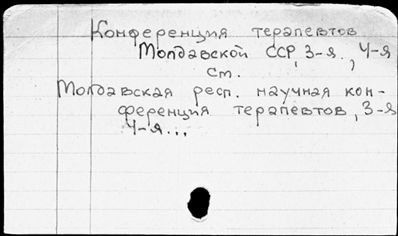 Конференция терапевтов
Молдавской ССР, 3-я., 4-я
см.
Молдавская респ. научная кон-
ференция терапевтов, 3-я
4-я...